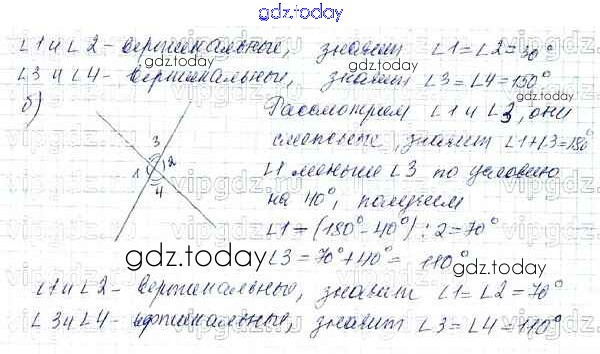 gdz.today
∠1 и ∠2 - вертикальные, значит ∠1 = ∠2 = 30°
∠3 и ∠4 - вертикальные, значит ∠3 = ∠4 = 150°
б)
Рассмотрим ∠1 и ∠3, они
смежные, значит ∠1+∠3=180°
∠1 меньше ∠3 по условию
на 40°, получаем
∠1 = (180° - 40°) : 2 = 70°
∠3 = 70° + 40° = 110°
3
1 2
4
gdz.today
gdz.today
∠1 и ∠2 - вертикальные, значит ∠1 = ∠2 = 70°
∠3 и ∠4 - вертикальные, значит ∠3 = ∠4 = 110°
gdz.today